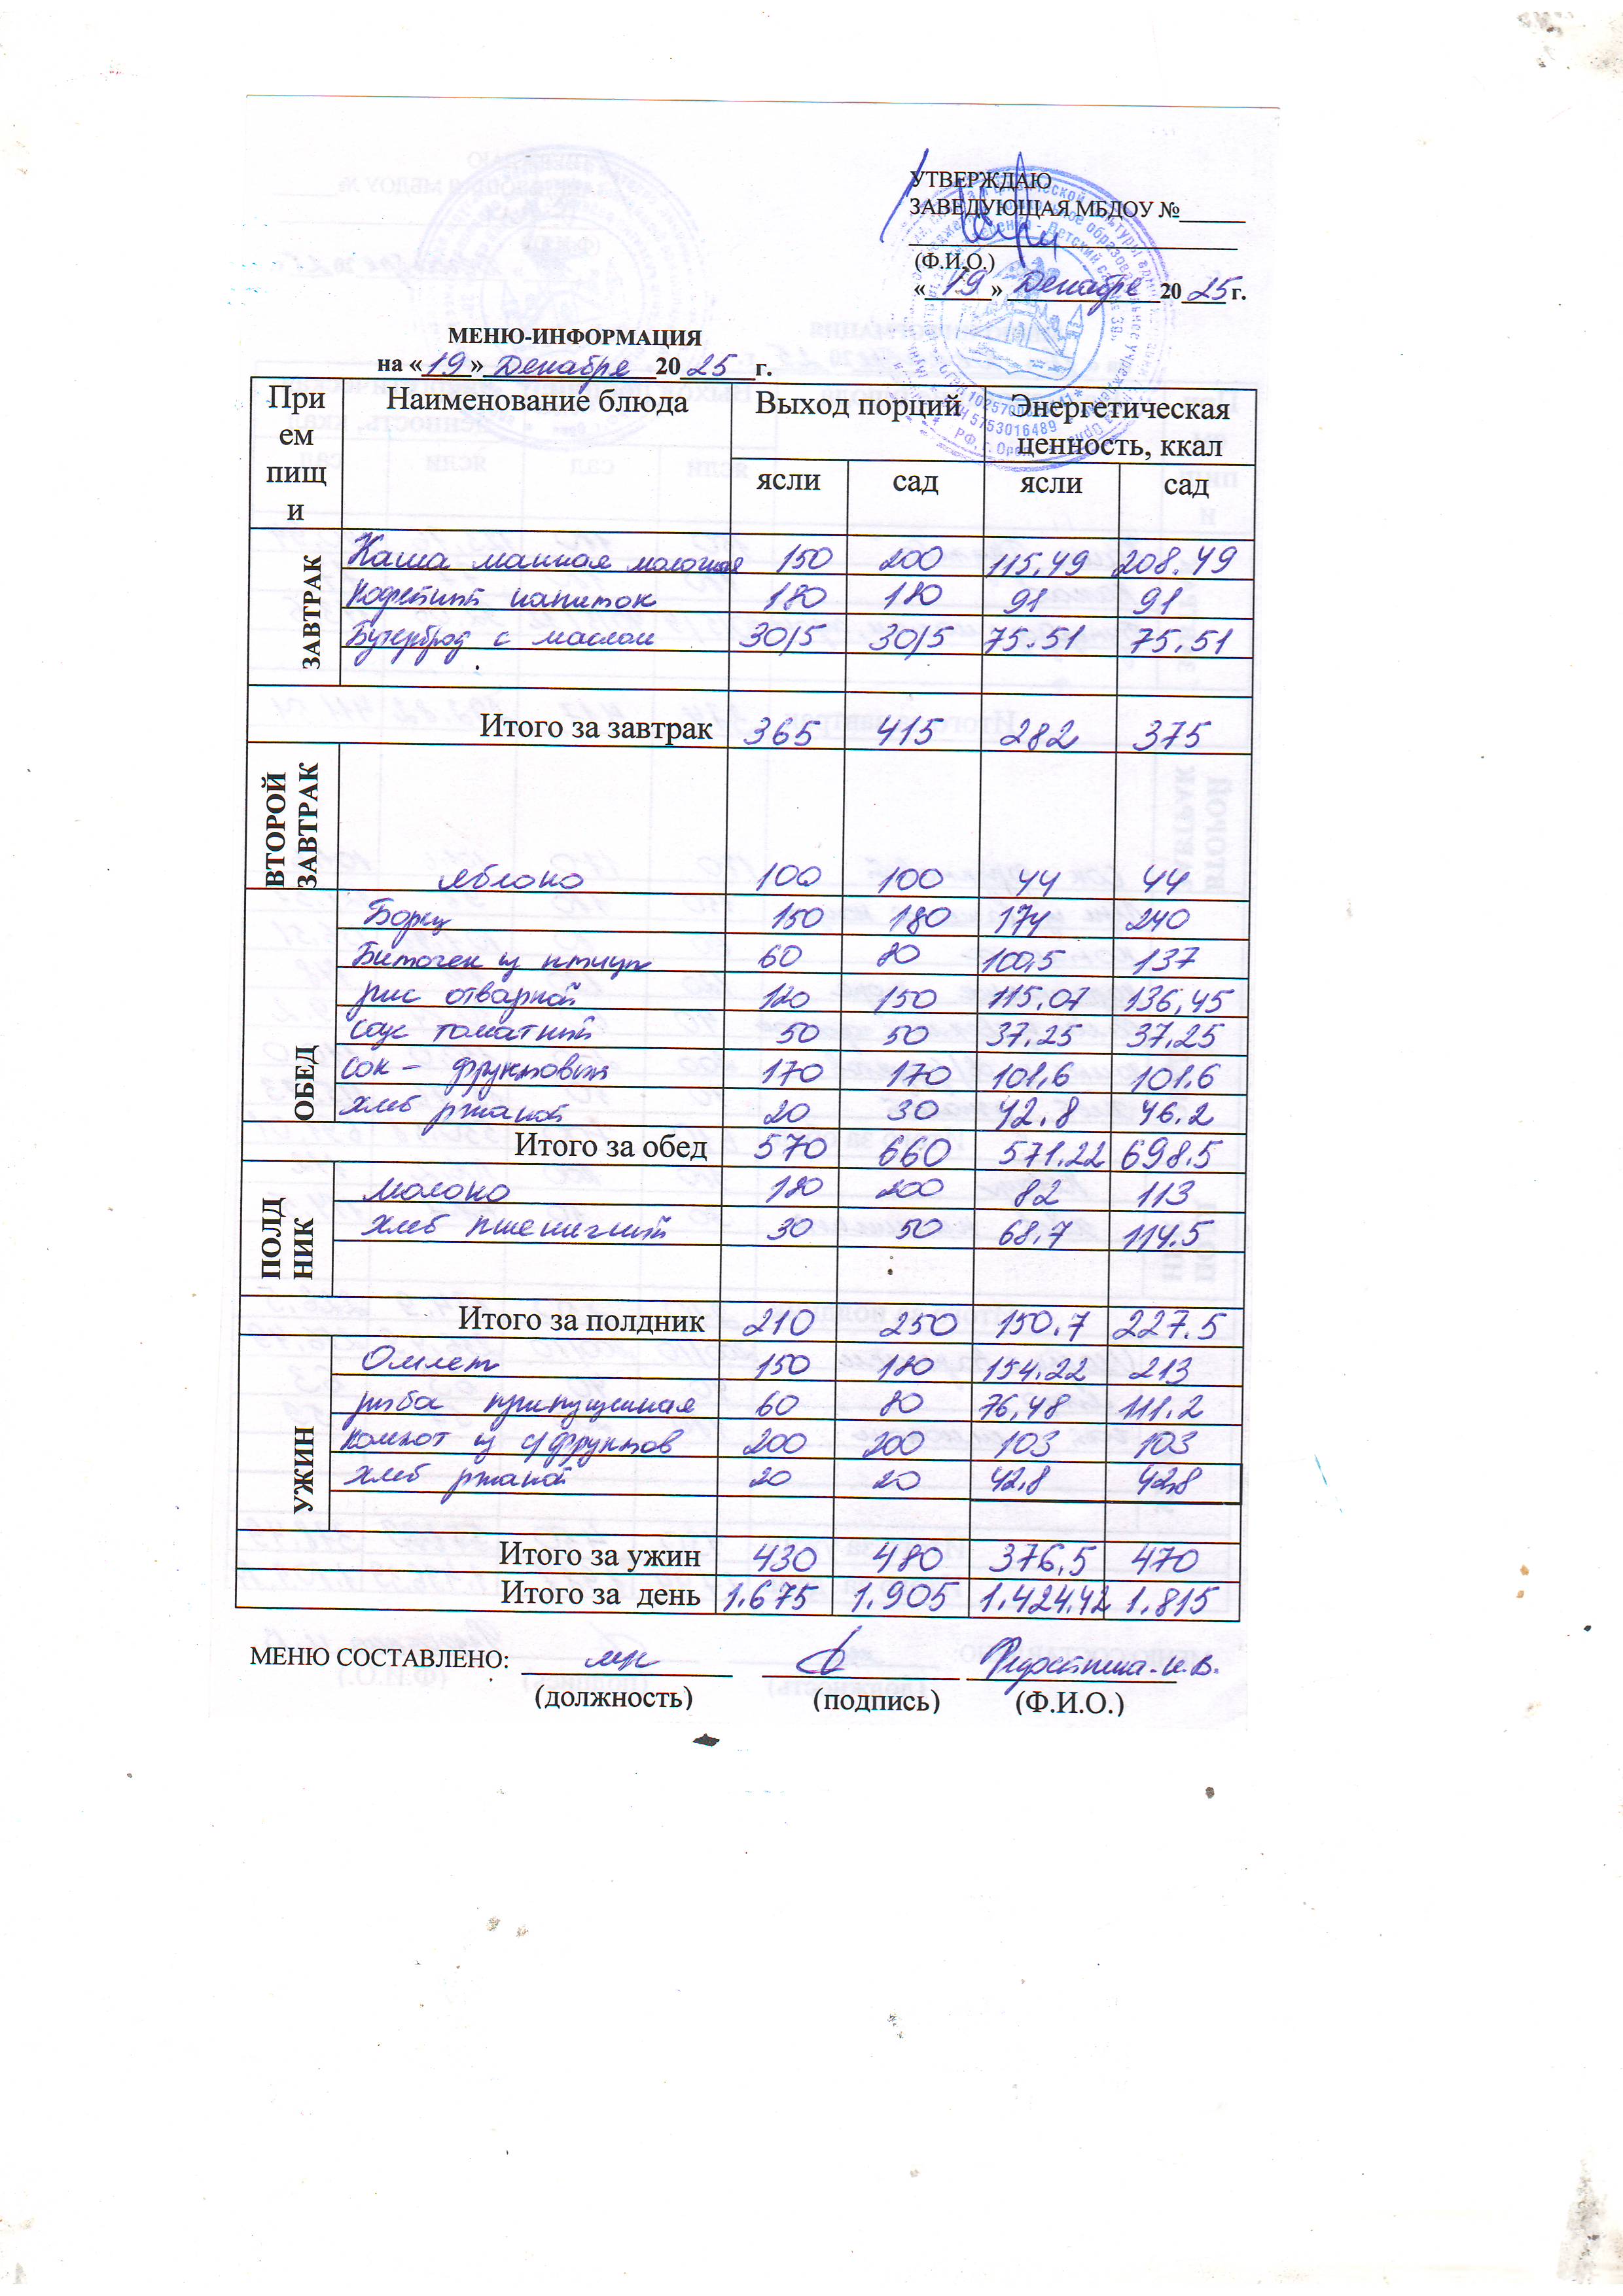 УТВЕРЖДАЮ
ЗАВЕДУЮЩАЯ МБДОУ №
(Ф.И.О.)
«19» Декабря 2025 г.
МЕНЮ-ИНФОРМАЦИЯ
на «19» Декабря 2025 г.
Прием пищи Наименование блюда Выход порций Энергетическая ценность, ккал
ясли сад ясли сад
ЗАВТРАК
Каша манная молочная 150 200 115,49 208.49
Кофейный напиток 180 180 91 91
Бутерброд с маслом 30/5 30/5 75.51 75.51
Итого за завтрак 365 415 282 375
ВТОРОЙ ЗАВТРАК
яблоко 100 100 44 44
ОБЕД
Борщ 150 180 174 240
Биточек из птицы 60 80 100,5 137
рис отварной 120 150 115,07 136,45
соус томатный 50 50 37.25 37,25
сок - фруктовый 170 170 101,6 101.6
хлеб ржаной 20 30 42.8 46.2
Итого за обед 570 660 571.22 698.5
ПОЛДНИК
молоко 180 200 82 113
хлеб пшеничный 30 50 68.7 114.5
Итого за полдник 210 250 150.7 227.5
УЖИН
Омлет 150 180 154.22 213
рыба припущенная 60 80 76,48 111.2
компот из с/фруктов 200 200 103 103
хлеб ржаной 20 20 42,8 42,8
Итого за ужин 430 480 376,5 470
Итого за день 1.675 1.905 1.424.42 1.815
МЕНЮ СОСТАВЛЕНО:
(должность) (подпись) (Ф.И.О.)